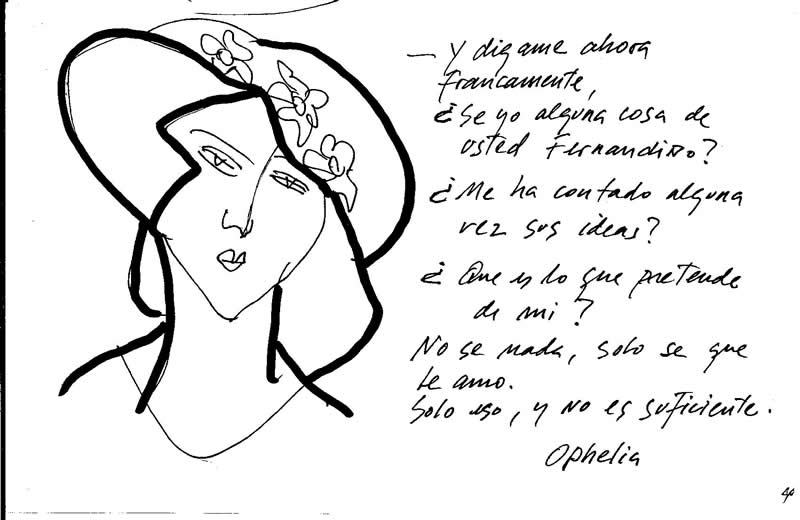 — Y digame ahora
francamente,
¿Se yo alguna cosa de
usted Fernandiño?
¿Me ha contado alguna
vez sus ideas?
¿Que es lo que pretende
de mi?
No se nada, solo se que
te amo.
Solo eso, y no es suficiente.
Ophelia